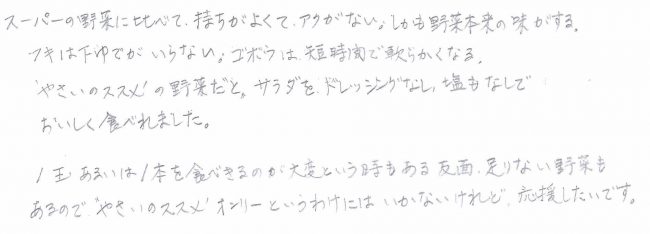 スーパーの野菜に比べて、持ちがよくて、アクがない。しかも野菜本来の味がする。
フキは下ゆでがいらない。ゴボウは、短時間で軟らかくなる。
"やさいのススメ"の野菜だと、サラダを、ドレッシングなし、塩もなしで
おいしく食べれました。
1玉あるいは1本を食べきるのが大変という時もある反面、足りない野菜も
あるので、"やさいのススメ"オンリーというわけにはいかないけれど、応援したいです。